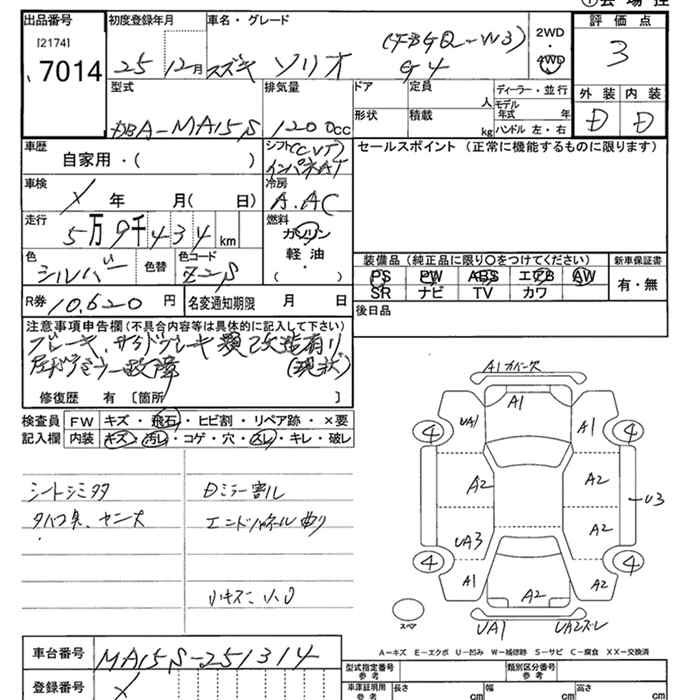 出品番号
[2174]
7014
初度登録年月
25 12月
車名・グレード
スズキ ソリオ G4
2WD
・
4WD
評価点
3
外装 内装
D D
型式
DBA-MA15S
排気量
1200cc
ドア
定員
人
形状
積載
kg
ディーラー・並行
モデル
年式 年
ハンドル 左・右
車歴
自家用・( )
シフト(CVT)
インパネAT
セールスポイント (正常に機能するものに限ります)
車検
年 月( 日)
冷房
A.AC
走行
5万9千434km
燃料
ガソリン
軽油
( )
色
シルバー
色替
色コード
Z2S
装備品 (純正品に限り○をつけてください)
PS PW ABS エアB AW
SR ナビ TV カワ
新車保証書
有・無
R券
10,620円
名変通知期限 月 日
後日品
注意事項申告欄(不具合内容等は具体的に記入して下さい)
ブレーキ、サイドブレーキ 改造有り
故障 (現状)
修復歴 有 [箇所 ]
検査員
記入欄
FW キズ・飛石・ヒビ割・リペア跡・×要
内装 キズ・汚レ・コゲ・穴・スレ・キレ・破レ
シートシミタタ
Dミラー割レ
エンドパネル曲り
A1カバー欠
A1
UA1
A1
4
4
A2
A2
U3
UA3
A2
4
4
A1
A2
A2
スペア
UA1
UA2ズレ
A-キズ E-エクボ U-凹み W-補修跡 S-サビ C-腐食 XX-交換済
車台番号
MA15S-251314
登録番号
型式指定番号
参考
類別区分番号
参考
車庫証明用
参考
長さ cm
幅 cm
高さ cm